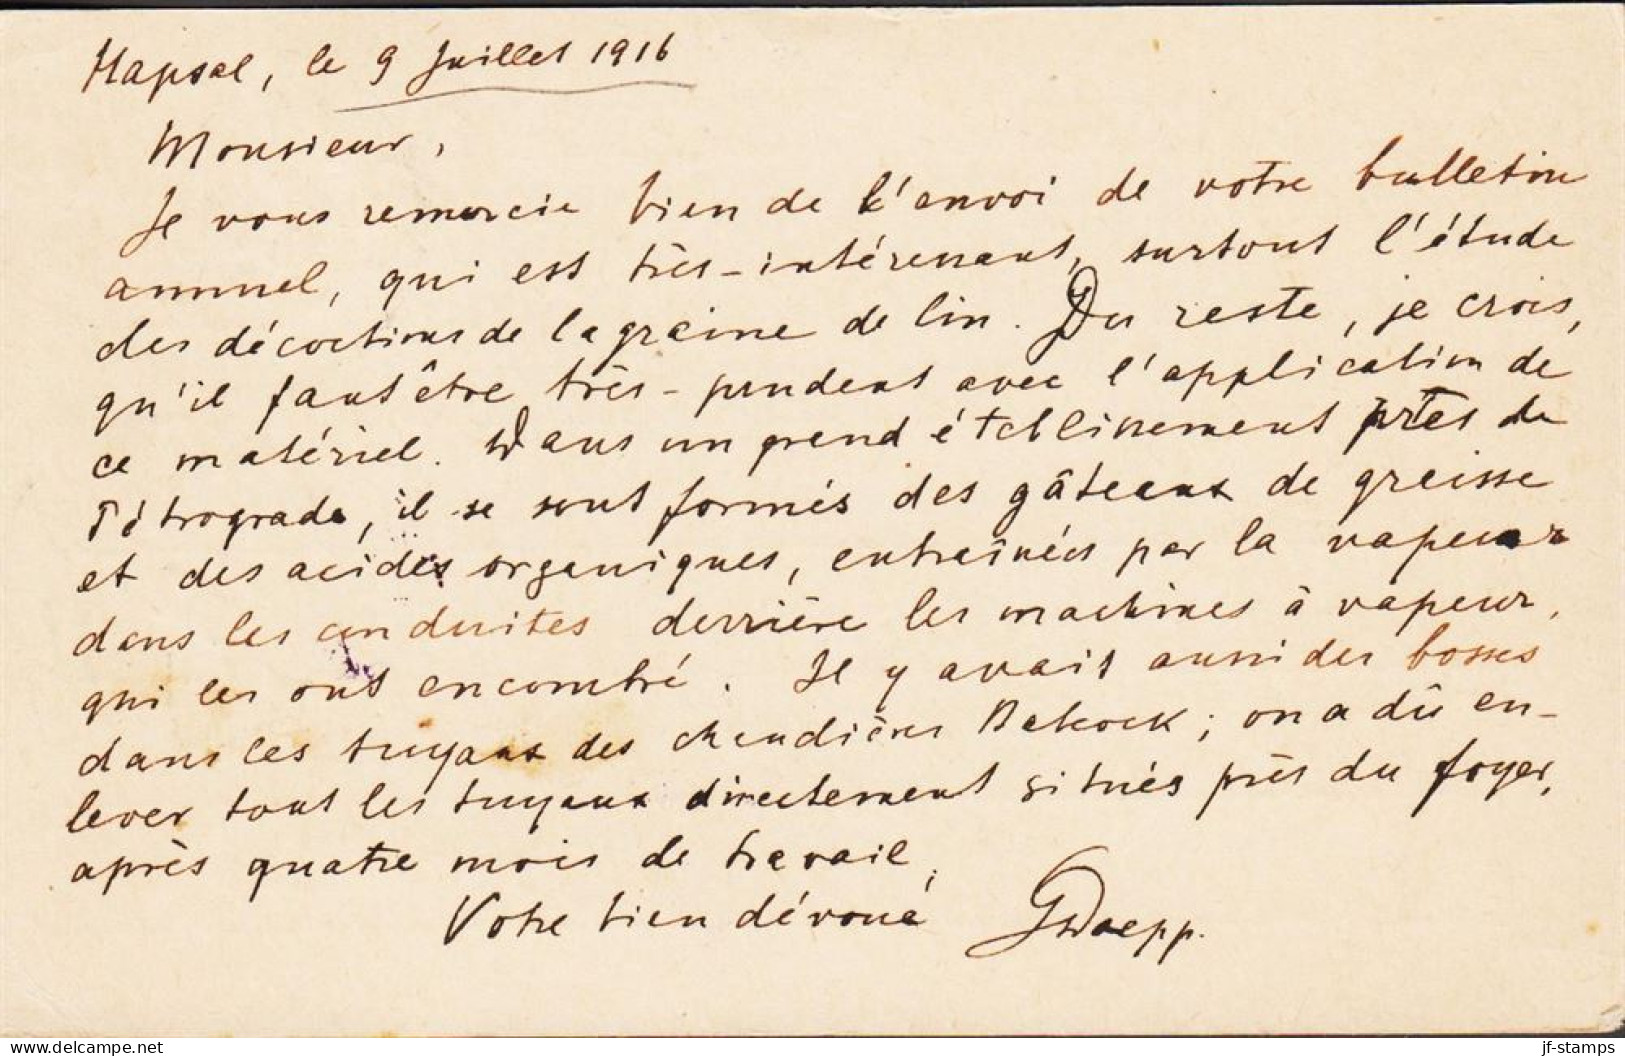 Hapsal, le 9 Juillet 1916
Monsieur,
Je vous remercie bien de l'envoi de votre bulletin
annuel, qui est très-intéressant, surtout l'étude
des décoctions de la graine de lin. Du reste, je crois,
qu'il faut être très-prudent avec l'application de
ce matériel. Dans un grand établissement près de
Pétrograde, il se sont formés des gâteaux de graisse
et des acides organiques, entraînées par la vapeur
dans les conduites derrière les machines à vapeur,
qui les ont encombré. Il y avait aussi des bosses
dans les tuyaux des chaudières Babcock; on a dû en-
lever tout les tuyaux directement situés près du foyer,
après quatre mois de travail.
Votre bien dévoué
jf-stamps
www.delcampe.net